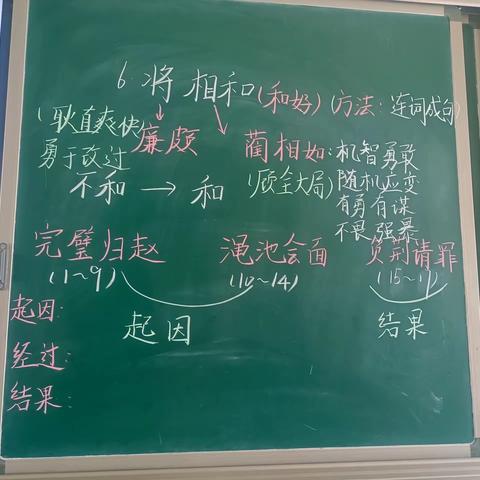 6.将相和(和好)(方法:连词成句)
(耿直爽快
勇于改过
廉颇
蔺相如:机智勇敢
(顾全大局)随机应变
有勇有谋
不畏强暴
不和→和
完璧归赵 渑池会面 负荆请罪
(1~9) (10~14) (15~17)
起因 结果
起因:
经过:
结果: